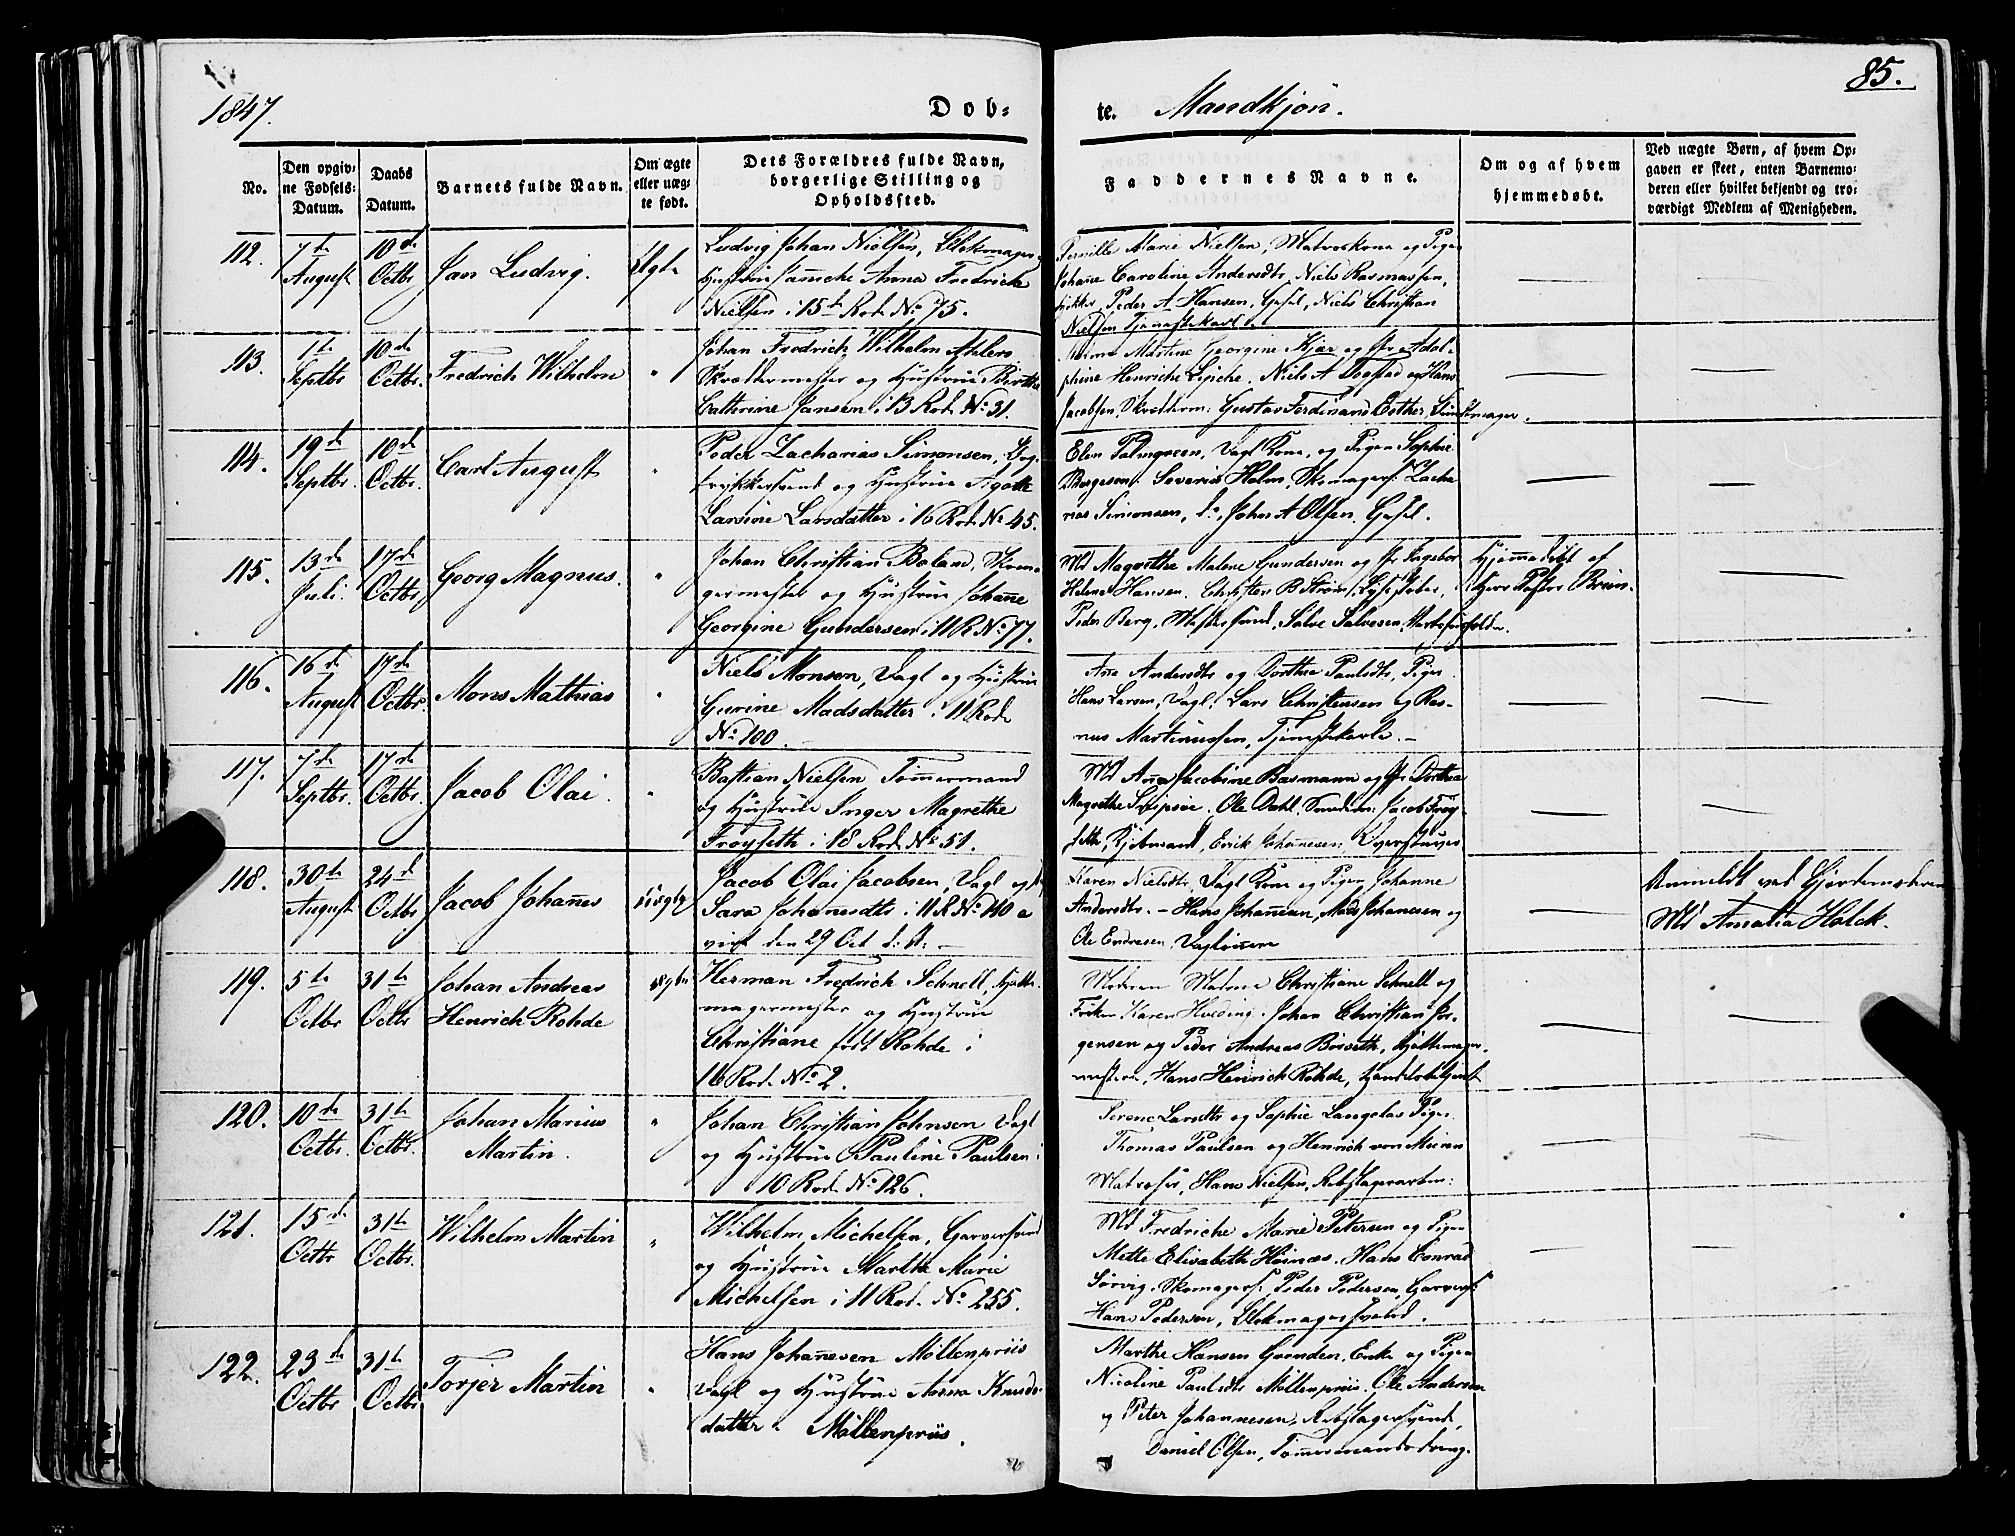 1847.
Døb-
te. Mandkjøn.
85.
No.
Den opgiv-
ne Fødsels-
Datum.
Daabs
Datum.
Barnets fulde Navn.
Om ægte
eller uæg-
te født.
Dets Forældres fulde Navn,
borgerlige Stilling og
Opholdssted.
Faddernes Navne.
Om og af hvem
hjemmedøbt.
Ved uægte Børn, af hvem Op-
gaven er skeet, enten Barnemo-
deren eller hvilket bekjendt og tro-
værdigt Medlem af Menigheden.
112.
7de
August
10de
Octbr
Jan Ludvig.
Ægte
Ludvig Johan Nielsen, Blokmager,
Hustrue Anna Fredricke
Nielsen i 15de Rode No 75.
Pernille Marie Nielsen, Matroskone og Pigen
Johañe Caroline Andersdtr, Niels Rasmussen,
Peder A Hansen, Niels Christian
Nielsen Tjenestekarl.
113.
1te
Septbr
10de
Octbr.
Fredrich Wilhelm
"
Johan Fredrich Wilhelm Ahlers
Skræddermester og Hustrue Birthe
Cathrine Jansen i 13 Rode No 31.
Martine Georgine Kjær og Fr Adol-
phine Henriche Niels A og Hans
Jacobsen, Skrædderm: Gustav Ferdinand
114.
19de
Septbr.
10de
Octbr.
Carl August
"
Peder Zacharias Simonsen, Bog-
trykkersvend og Hustrue Agathe
Larsine Larsdatter i 16 Rode No 45.
Elen Dagl Kone, og Pigen Sophie
Børgesen. Severin Holm, Skomagers: Zacha
rias Simonsen, do, Johan A Olsen,
115.
13de
Juli.
17de
Octbr.
Georg Magnus.
"
Johan Christian Skoma-
germester og Hustrue Johañe
Georgine Gundersen i 11 R No 77.
Md Magrethe Malene Gundersen og Fr Ingebor
Helene Hansen. Christen B Strøm,
Peder Berg, Salve Salvesen,
Hjemmedøbt af
Herr Pastor Bruun.
116.
16de
August
17de
Octbr.
Mons Mathias
"
Niels Monsen, Dagl og Hustrue
Gurine Madsdatter i 11 Rode
No 100.
Añe Andersdtr og Dorthea Paulsdtr, Piger.
Hans Larsen, Dagl: Lars Christensen og Ras-
mus Martinussen, Tjenestekarle.
117.
7de
Septbr.
17de
Octbr.
Jacob Olai
"
Bastian Nielsen Tømmermand
og Hustrue Inger Magrethe
Frøyseth i 18 Rode No 51.
Md Aña Jacobine Basmann og Fr Dorthea
Magrethe Ole Dahl, Jacob Frøy-
seth, Kjøbmand, Erick Johannesen,
118.
30te
August
24de
Octbr
Jacob Johañes
Jacob Olai Jacobsen, Dagl og
Sara Johanesdtr i 11 R No 110 a
viet den 29 Oct d. A. —
Karen Nielsdtr, Dagl Kone og Pigen Johanne
Andersdtr. — Hans Johañesen, Mads Johanesen og
Ole Endresen, Dagløñere
Anmeldt ved Gjordemoderen
Md Amalia Holck.
119.
5te
Octbr
31te
Octbr
Johan Andreas
Henrich Rohde
Ægte
Herman Fredrich Schnell, Hatte-
magermester og Hustrue
Christiane født Rohde i
16 Rode No 2.
Moderen Madame Christiane Schnell og
Frøken Karen Hveding. Johan Christian Jør-
gensen og Peder Andreas Børseth, Hattemager-
mestere, Hans Henrick Rohde, Handelsbetjent
120.
10de
Octbr.
31te
Octbr.
Johan Marius
Martin.
"
Johan Christian Johnsen Dagl
og Hustrue Pauline Paulsen i
10 Rode No 126.
Serene Larsdtr og Sophie Langelas Piger.
Thomas Paulsen og Henrich von Müren
Matroser, Hans Nielsen, Rebslagerarbm:
121.
15de
Octbr
31te
Octbr.
Wilhelm Martin
"
Wilhelm Michelsen, Garversvend
og Hustrue Marthe Marie
Michelsen i 11 Rode No 255.
Md Fredriche Marie Petersen og Pigen
Mette Elisabeth Høinæs. Hans Conrad
Sørvig, Skomagers: Peder Pedersen, Garvers:
Hans Pedersen, Blokmagersvend.
122.
23de
Octbr
31te
Octbr
Torjer Martin
"
Hans Johañesen Møllenpriis
Dagl og Hustrue Anna Knuds-
datter Møllenpriis.
Marthe Hansen Grønden, Enke og Pigen
Nicoline Paulsdtr Møllenpriis. Ole Andersen
og Peter Johannesen, Rebslagersvend,
Daniel Olsen, Tømmermandsdreng.